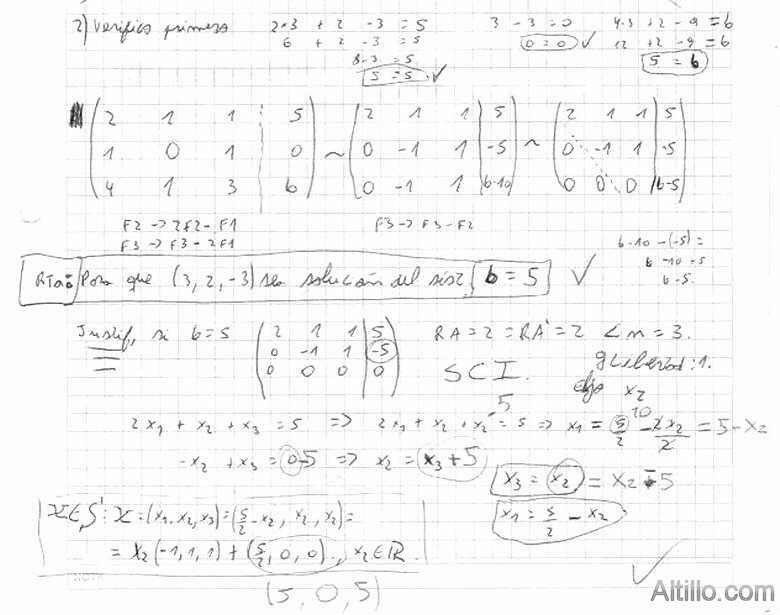 2) Verifico primero 2*3 + 2 -3 = 5    3 - 3 = 0    4.3 + 2 - 9 = b
6 + 2 - 3 = 5    0 = 0 ✓    12 + 2 - 9 = b
8 - 3 = 5    5 = b
5 = 5 ✓
2 1 1 | 5    2 1 1 | 5    2 1 1 | 5
1 0 1 | 0 ~ 0 -1 1 | -5 ~ 0 -1 1 | -5
4 1 3 | b    0 -1 1 | b-10    0 0 0 | b-5
F2 → 2F2 - F1    F3 → F3 - F2
F3 → F3 - 2F1
b - 10 - (-5) =
b - 10 + 5
b - 5.
RTa: Para que (3, 2, -3) sea solución del sist b = 5 ✓
Justif, si b = 5    2 1 1 | 5    RA = 2 = RA' = 2 < n = 3.
0 -1 1 | -5
0 0 0 | 0
SCI.    g libertad: 1.
elijo x2
2x1 + x2 + x3 = 5 => 2x1 + x2 + x2 -5 = 5 => x1 = 5/2 10 - 2x2/2 = 5 - x2
-x2 + x3 = 0 -5 => x2 = x3 + 5
x3 = x2 = x2 - 5
x1 = 5/2 - x2
X ∈ S: X = (x1, x2, x3) = (5/2 - x2, x2, x2) =
= x2 (-1, 1, 1) + (5/2, 0, 0), x2 ∈ R.
(5, 0, 5)
✓
Altillo.com